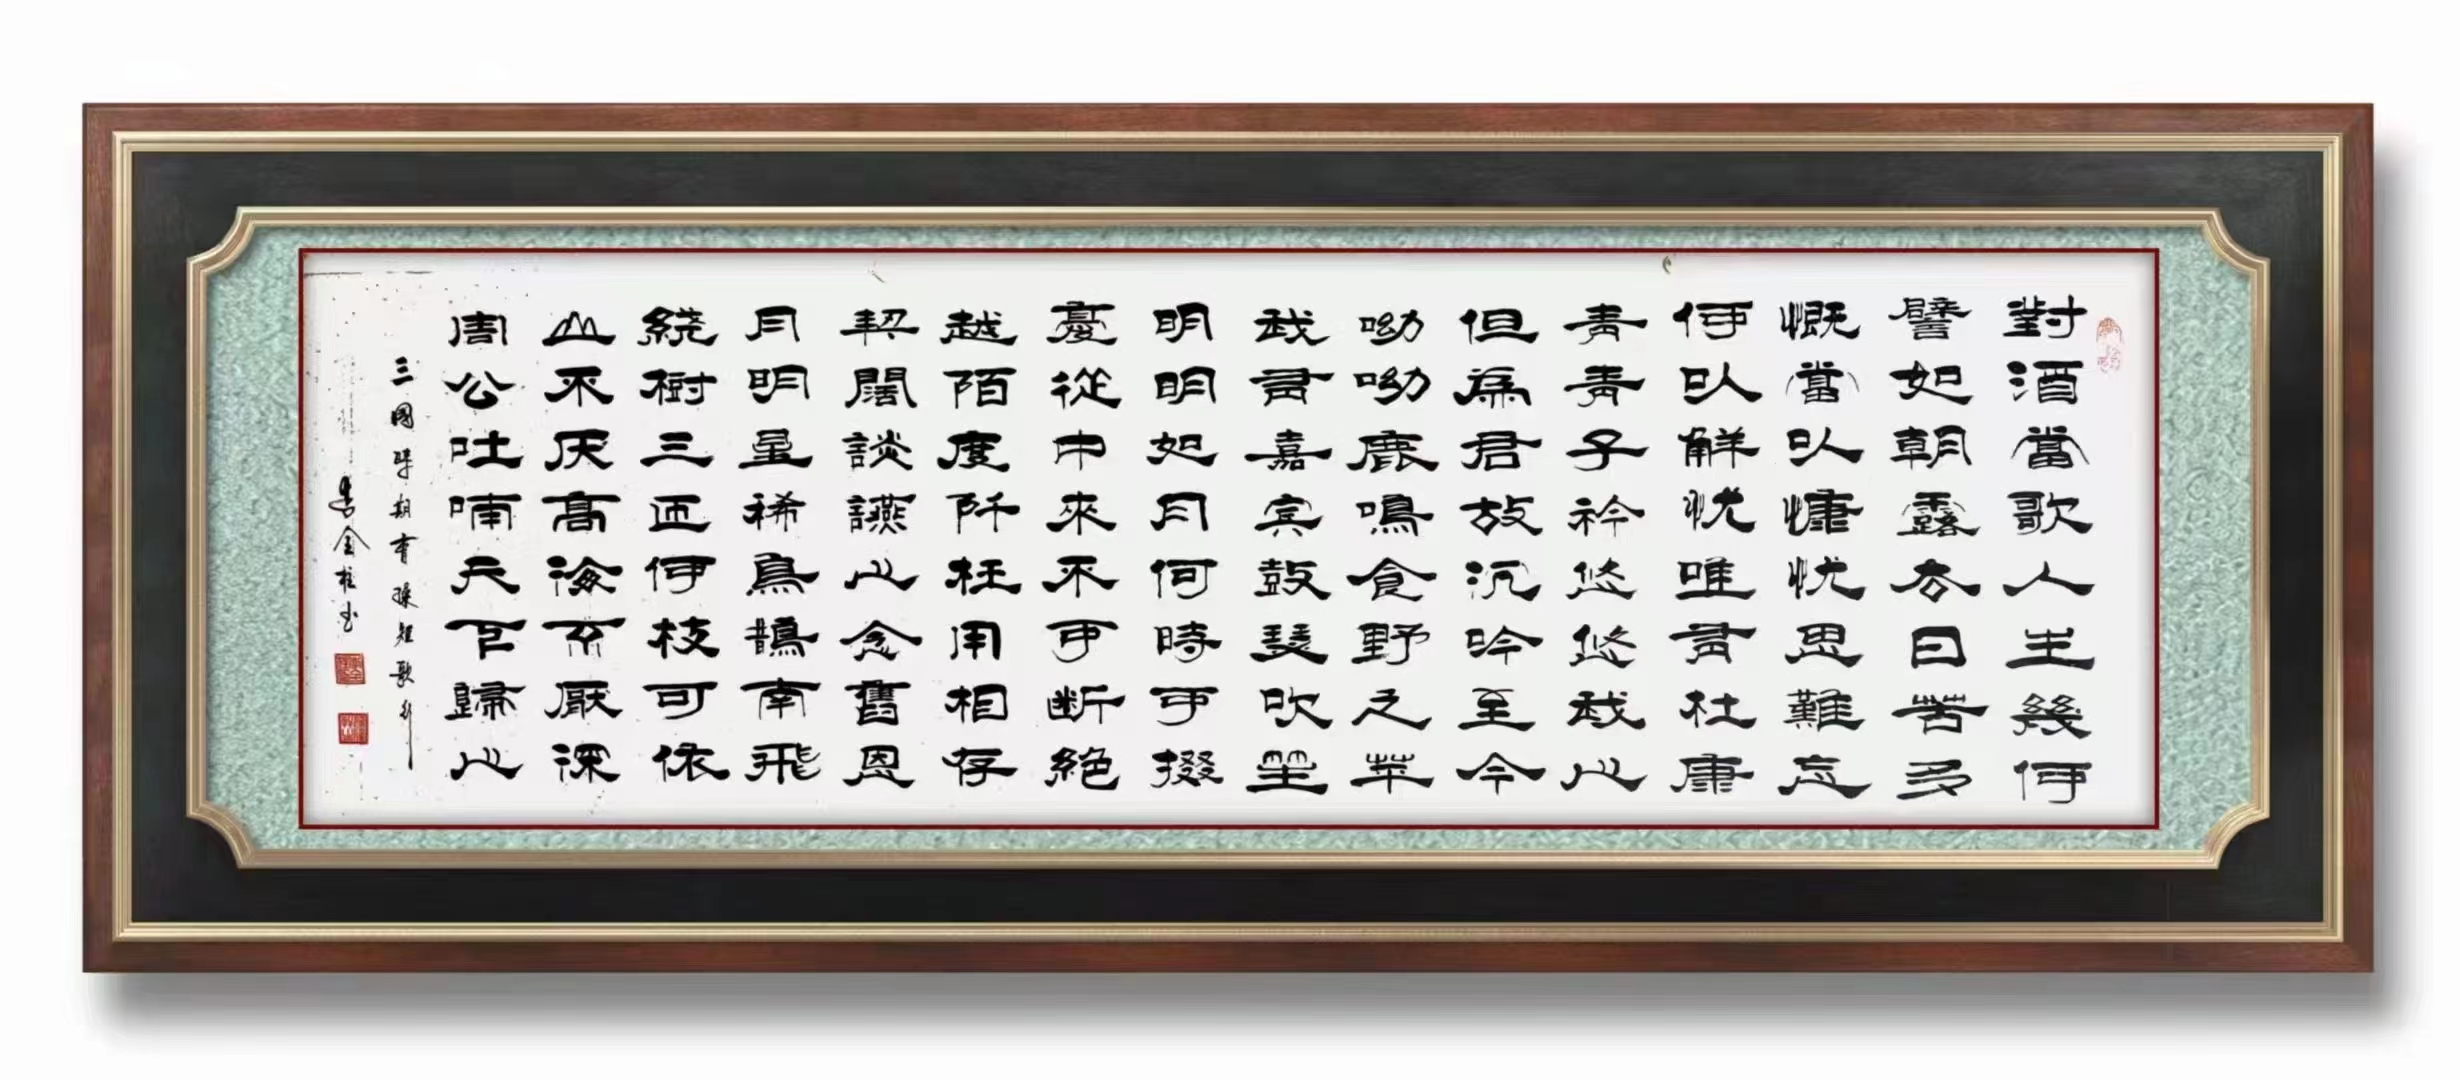 對酒當歌人生幾何
譬如朝露去日苦多
慨當以慷忧思難忘
何以解忧唯有杜康
青青子衿悠悠我心
但為君故沉吟至今
呦呦鹿鳴食野之苹
我有嘉宾鼓瑟吹笙
明明如月何時可掇
憂從中來不可断絕
越陌度阡枉用相存
契闊談讌心念舊恩
月明星稀鳥鵲南飛
繞樹三匝何枝可依
山不厌高海不厭深
周公吐哺天下歸心
三國時期曹操短歌行
金柱书